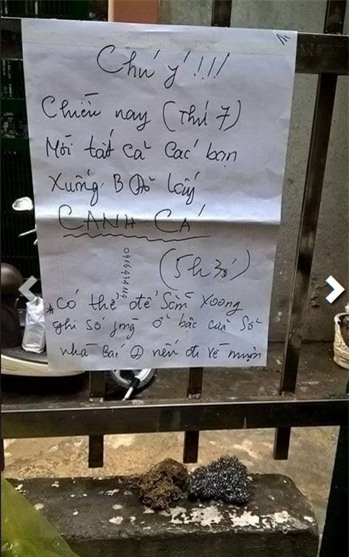 Chú ý!!!
Chiều nay (Thứ 7)
Mời tất cả các bạn
Xuống B Đỏ lấy
CANH CÁ
(5h30')
* có thể để sẵn xoong
ghi số phòng ở bậc cửa sổ
nhà Bà nếu đi về muộn